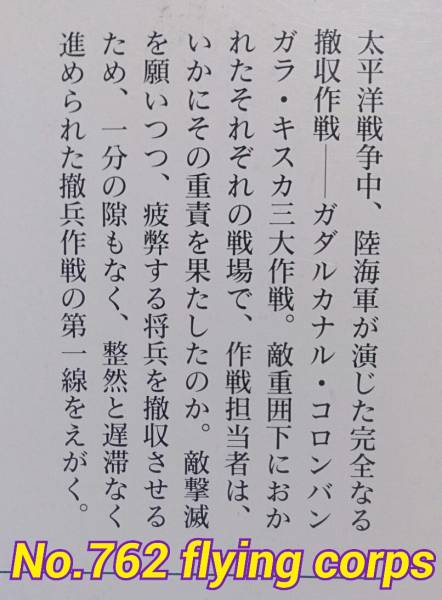 太平洋戦争中、陸海軍が演じた完全なる
撤収作戦――ガダルカナル・コロンバン
ガラ・キスカ三大作戦。敵重囲下におか
れたそれぞれの戦場で、作戦担当者は、
いかにその重責を果たしたのか。敵撃滅
を願いつつ、疲弊する将兵を撤収させる
ため、一分の隙もなく、整然と遅滞なく
進められた撤兵作戦の第一線をえがく。
No.762 flying corps